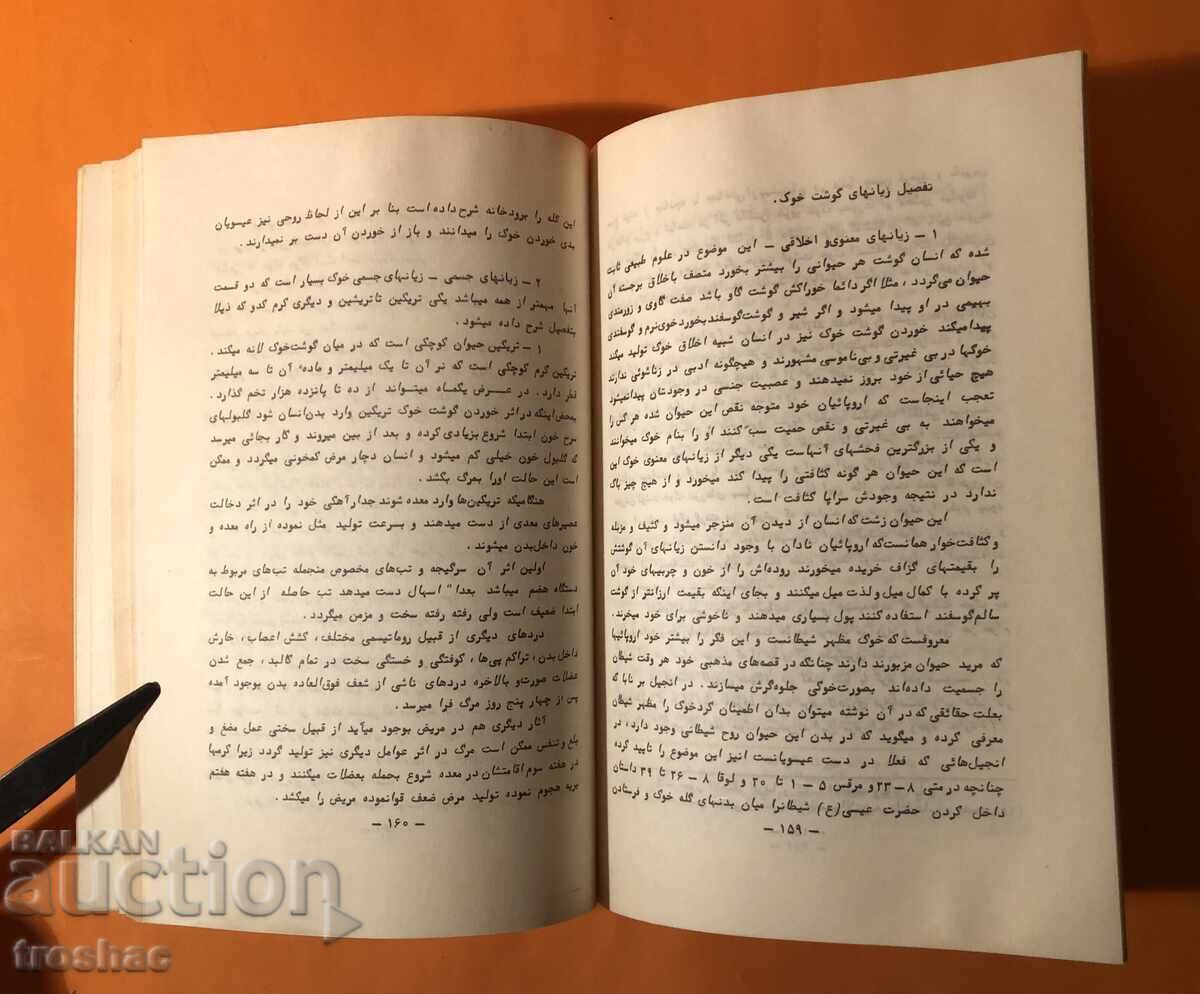 تفصیل زیانهای گوشت خوک.
۱ – زیانهای معنوی و اخلاقی – این موضوع در علوم طبیعی ثابت
شده که انسان گوشت هر حیوانی را بیشتر بخورد متصف باخلاق برجسته آن
حیوان می‌گردد، مثلا اگر دائما خوراکش گوشت گاو باشد صفت گاوی و زورمندی
بهیمی در او پیدا میشود و اگر شیر و گوشت گوسفند بخورد خوی نرم و گوسفندی
پیدا میکند خوردن گوشت خوک نیز در انسان شبیه اخلاق خوک تولید میکند
خوکها در بی غیرتی و بی‌ناموسی مشهورند و هیچگونه ادبی در زناشوئی ندارند
هیچ حیائی از خود بروز نمیدهند و عصبیت جنسی در وجودشان پیدا نمیشود
تعجب اینجاست که اروپائیان خود متوجه نقص این حیوان شده هر کس را
میخواهند به بی غیرتی و نقص حمیت سب کنند او را بنام خوک میخوانند
و یکی از بزرگترین فحشهای آنهاست یکی دیگر از زیانهای معنوی خوک این
است که این حیوان هر گونه کثافتی را پیدا کند میخورد و از هیچ چیز باک
ندارد در نتیجه وجودش سراپا کثافت است.
این حیوان زشت که انسان از دیدن آن منزجر میشود و کثیف و مزبله
و کثافت‌خوار همانست که اروپائیان نادان با وجود دانستن زیانهای آن گوشتش
را بقیمتهای گزاف خریده میخورند روده‌اش را از خون و چربیهای خود آن
پر کرده با کمال میل و لذت میل میکنند و بجای اینکه بقیمت ارزانتر از گوشت
سالم گوسفند استفاده کنند پول بسیاری میدهند و ناخوشی برای خود میخرند.
معروفست که خوک مظهر شیطانست و این فکر را بیشتر خود اروپائیها
که مرید حیوان مزبورند دارند چنانکه در قصه‌های مذهبی خود هر وقت شیطان
را جسمیت داده‌اند بصورت خوکی جلوه‌گرش میسازند. در انجیل برنابا که
بعلت حقائقی که در آن نوشته میتوان بدان اطمینان کرد خوک را مظهر شیطان
معرفی کرده و میگوید که در بدن این حیوان روح شیطانی وجود دارد، در
انجیل‌هائی که فعلا در دست عیسویانست انیز این موضوع را تایید کرده
چنانچه در متی ۸ – ۲۳ و مرقس ۵ – ۱ تا ۲۰ و لوقا ۸ – ۲۶ تا ۳۹ داستان
داخل کردن حضرت عیسی (ع) شیطانرا میان بدنهای گله خوک و فرستادن
– ۱۵۹ –
این گله را برودخانه شرح داده است بنا بر این از لحاظ روحی نیز عیسویان
بدی خوردن خوک را میدانند و باز از خوردن آن دست بر نمیدارند.
۲ – زیانهای جسمی – زیانهای جسمی خوک بسیار است که دو قسمت
آنها مهمتر از همه میباشد یکی تریگین تاتریشین و دیگری کرم کدو که ذیلا
بتفصیل شرح داده میشود.
۱ – تریگین حیوان کوچکی است که در میان گوشت‌خوک لانه میکند.
تریگین کرم کوچکی است که نر آن تا یک میلیمتر و ماده' آن تا سه میلیمتر
قطر دارد. در عرض یکماه میتواند از ده تا پانزده هزار تخم گذارد.
بمحض‌اینکه در اثر خوردن گوشت خوک تریگین وارد بدن‌انسان شود گلبولهای
سرخ خون ابتدا شروع بزیادی کرده و بعد از بین میروند و کار بجائی میرسد
که گلبول خون خیلی کم میشود و انسان دچار مرض کمخونی میگردد و ممکن
است این حالت اورا بمرگ بکشد.
هنگامیکه تریگین‌ها وارد معده شوند جدارآهکی خود را در اثر دخالت
عصیرهای معدی از دست میدهند و بسرعت تولید مثل نموده از راه معده و
خون داخل‌بدن میشوند.
اولین اثر آن سرگیجه و تب‌های مخصوص منجمله تب‌های مربوط به
دستگاه هضم میباشد بعدا" اسهال دست میدهد تب حاصله از این حالت
ابتدا ضعیف است ولی رفته رفته سخت و مزمن میگردد.
دردهای دیگری از قبیل روماتیسمی مختلف، کشش اعصاب، خارش
داخل بدن، تراکم پی‌ها، کوفتگی و خستگی سخت در تمام کالبد، جمع شدن
عضلات صورت و بالاخره دردهای ناشی از ضعف فوق‌العاده بدن بوجود آمده
پس از چهار پنج روز مرگ فرا میرسد.
آثار دیگری هم در مریض بوجود میآید از قبیل سختی عمل مضغ و
بلع و تنفس ممکن است مرگ در اثر عوامل دیگری نیز تولید گردد زیرا کرمها
در هفته سوم اقامتشان در معده شروع بحمله بعضلات میکنند و در هفته هفتم
بریه هجوم نموده تولید مرض ضعف قوانموده مریض را میکشد.
– ۱۶۰ –
BALKAN
auction
troshac